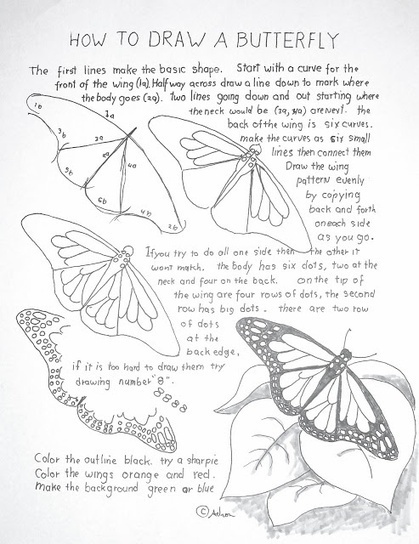 HOW TO DRAW A BUTTERFLY
The first lines make the basic shape. Start with a curve for the
front of the wing (1a). Half way across draw a line down to mark where
the body goes (2a). Two lines going down and out starting where
the neck would be (3a, 4a) are next. the
back of the wing is six curves.
make the curves as six small
lines then connect them
Draw the wing
pattern evenly
by copying
back and forth
on each side
as you go.
1b
1a
3b
2a
3a
4a
5b
6b
4b
2b
If you try to do all one side then the other it
wont match. the body has six dots, two at the
neck and four on the back. on the tip of
the wing are four rows of dots, the second
row has big dots. there are two row
of dots
at the
back edge,
if it is too hard to draw them try
drawing number "8".
Color the outline black. try a sharpie
Color the wings orange and red.
make the background green or blue
©